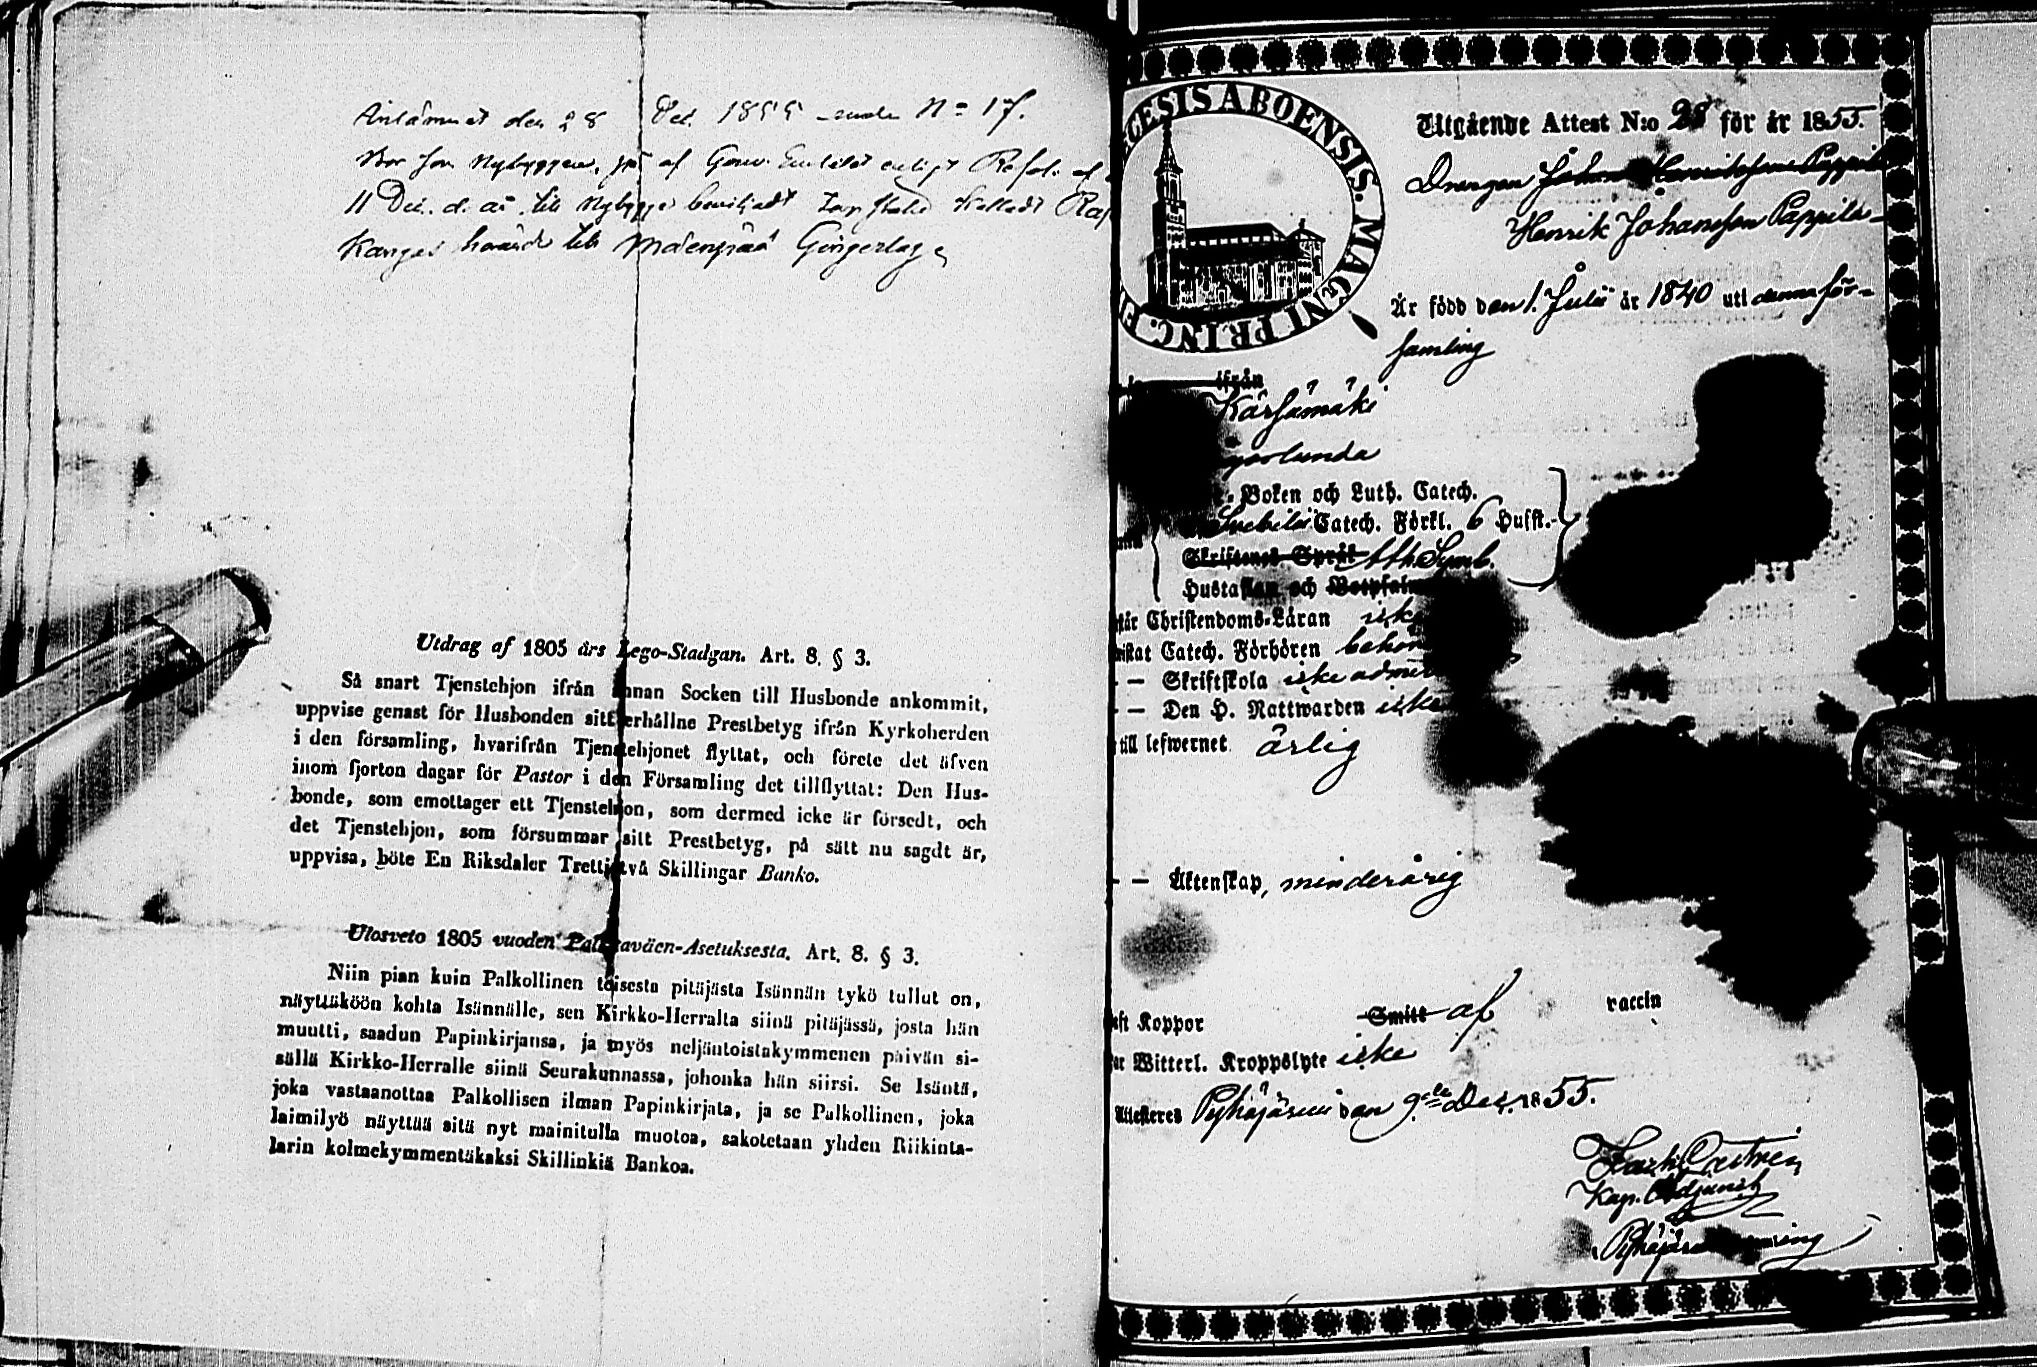 Inlämnat den 28 Dec. 1855 under N= 17.
Bor hos Nybyggaren, på af Gouv. Embetet enligt Resol. af
11 Dec. d. år. till Nybygge beviljadt Torpställe kalladt
Kangas hörande till Mäenpää Gingerlag
Utdrag af 1805 års Lego-Stadgan. Art. 8. § 3.
Så snart Tjenstehjon ifrån annan Socken till Husbonde ankommit,
uppvise genast för Husbonden sitt erhållne Prestbetyg ifrån Kyrkoherden
i den församling, hvarifrån Tjenstehjonet flyttat, och förete det äfven
inom fjorton dagar för Pastor i den Församling det tillflyttat: Den Hus-
bonde, som emottager ett Tjenstehjon, som dermed icke är försedt, och
det Tjenstehjon, som försummar sitt Prestbetyg, på sätt nu sagdt är,
uppvisa, böte En Riksdaler Trettijotvå Skillingar Banko.
Ulosveto 1805 vuoden Palkkaväen-Asetuksesta. Art. 8. § 3.
Niin pian kuin Palkollinen toisesta pitäjästa Isännän tykö tullut on,
näyttäköön kohta Isännälle, sen Kirkko-Herralta siinä pitäjässä, josta hän
muutti, saadun Papinkirjansa, ja myös neljäntoistakymmenen päivän si-
sällä Kirkko-Herralle siinä Seurakunnassa, johonka hän siirsi. Se Isäntä,
joka vastaanottaa Palkollisen ilman Papinkirjata, ja se Palkollinen, joka
laimilyö näyttää sitä nyt mainitulla muotoa, sakotetaan yhden Riikinta-
larin kolmekymmentäkaksi Skillinkiä Bankoa.
ECESIS ABOENSIS. MAGNI PRINC. F
Utgående Attest N:o 28 för år 1855.
Drengen Johan Henriksson Pappila
Henrik Johansson Pappila
Är född den 1. Julii år 1840 uti denna för-
samling
ifrån
Kärsämäki
Boken och Luth. Catech.
Svebilii Catech. Förkl. 6 Hufst.
Skriftenes Språk Ath. Symb.
Hustaflan och Botpsalm
Christendoms-Läran
Catech. Förhören
— Skriftskola icke
— Den H. Nattwarden icke
till lefwernet ärlig
— Äktenskap, minderårig
Koppor Smitt af vaccin
Witterl. Kroppslyte icke
Attesteres Pyhäjärvi den 9de Dec. 1855.
Castrén
Kap. Adjunct